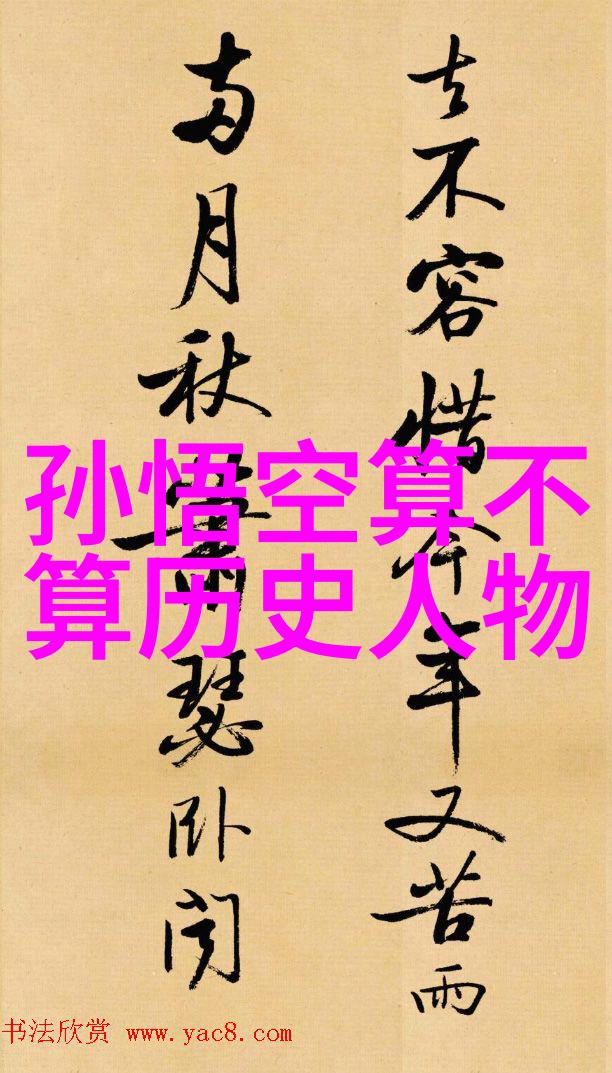 去不容惜今年又苦雨
兩月秋蕭瑟卧聞
孙悟空算不
算历史人物
书法欣赏 www.yac8.com